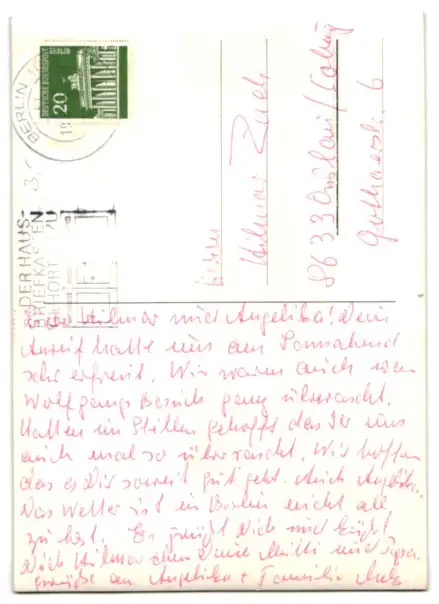 DEUTSCHE BUNDESPOST
BERLIN
20
BERLIN
DER HAUS-
BRIEFKASTEN
GEHÖRT ZU
Herrn
Hilmar
8633
Gothaerstr. 6
Hilmar und Angelika! Dein
Anruf hatte uns am Sonnabend
sehr erfreut. Wir waren auch von
Wolfgangs Besuch ganz überrascht.
Hatten im Stillen gehofft das Ihr uns
auch mal so überrascht. Wir hoffen
das es Dir soweit gut geht. Auch Angelika.
Das Wetter ist in Berlin nicht all
zu best. Es grüßt Dich und küßt
Dich Hilmar Deine Mutti und
grüße an Angelika + Familie